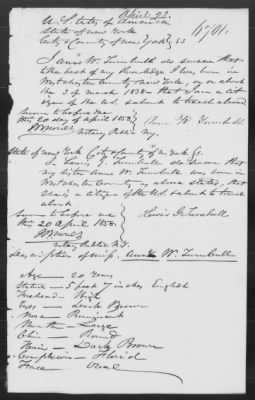 April 22
U. States of America
State of New York
City & County of New York } ss
6701.
I Annie W. Turnbull do swear that
the best of my knowledge I was born in
Westchester County of New York, on or about
the 3 of march 1838 that I am a citi
zen of the U.S. about to travel abroad
Sworn to before me
this 20 day of april 1858
Annie W. Turnbull
notary Public N.Y.
State of New York City & County of N. York ss.
I Lewis G. Turnbull do swear that
my sister Annie W. Turnbull was born in
Westchester County as above stated, that
she is a citizen of the U.S. about to travel
abroad
Sworn to before me
this 20 april 1858
Lewis G Turnbull
notary Public N.Y.
description of miss. Annie W. Turnbull
Age — 20 Years
Stature — 5 feet 7 inches English
Forehead — High
Eyes — Dark Brown
Nose — Prominent
Mouth — Large
Chin — Round
Hair — Dark Brown
Complexion — Florid
Face — Oval